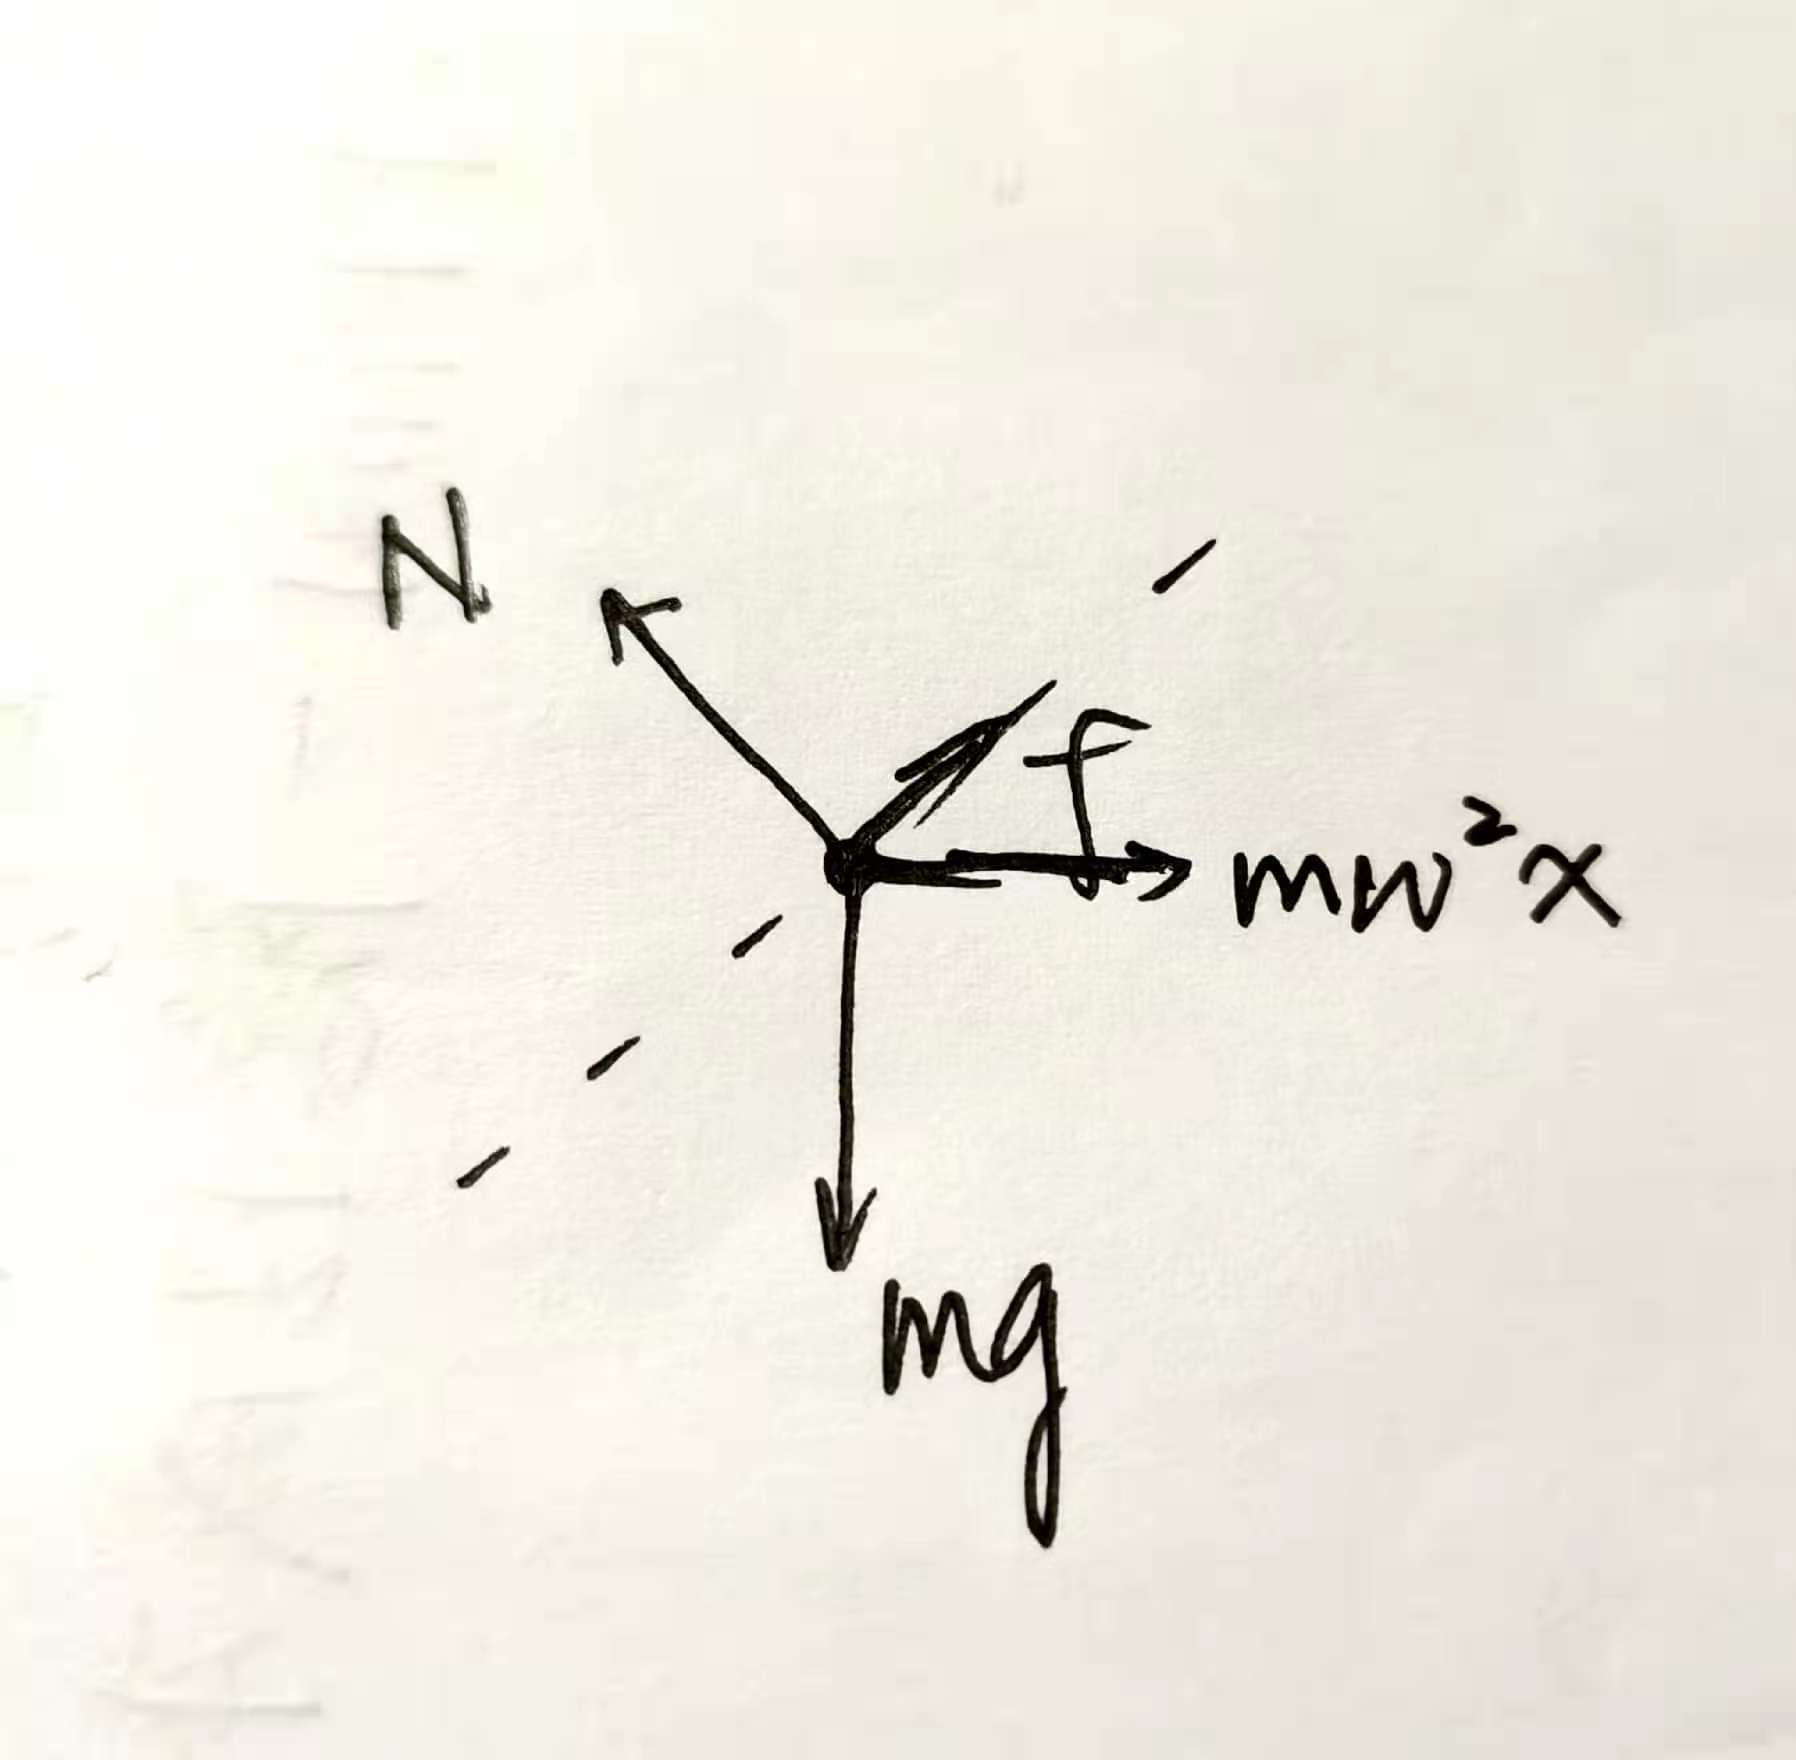 N
f
mw²x
mg